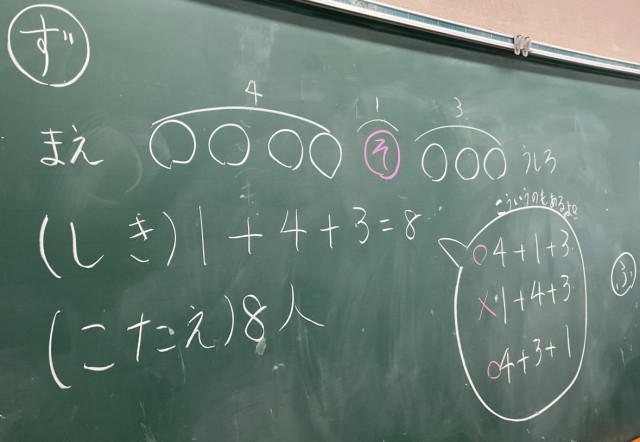 ず
4 1 3
まえ そ うしろ
(しき) 1+4+3=8
(こたえ) 8人
こういうのもあるよ。
○4+1+3
×1+4+3
○4+3+1
ふ